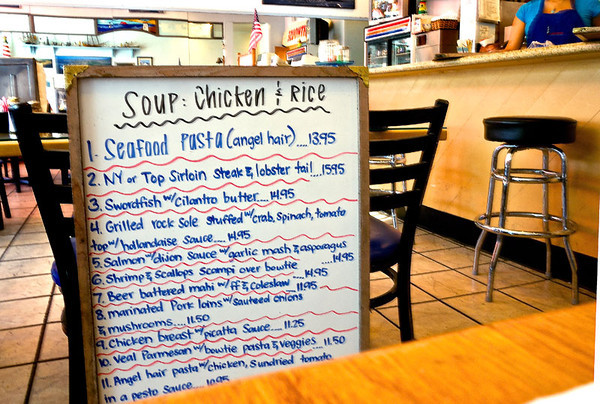 Soup: Chicken & Rice
1. Seafood Pasta (angel hair)....13.95
2. NY or Top Sirloin Steak & lobster tail...15.95
3. Swordfish w/cilanto butter....14.95
4. Grilled rock Sole Stuffed w/crab, spinach, tomato
top w/hollandaise Sauce....14.95
5. Salmon w/dijon Sauce w/garlic mash & asparagus
....14.95
6. Shrimp & Scallops Scampi over bowtie
....14.95
7. Beer battered mahi w/ff & coleslaw....11.95
8. marinated Pork loins w/sauteed onions
& mushrooms....11.50
9. Chicken breast w/picatta Sauce....11.25
10. Veal Parmesan w/bowtie pasta & veggies...11.50
11. Angel hair pasta w/chicken, Sundried tomato
in a pesto Sauce....10.95